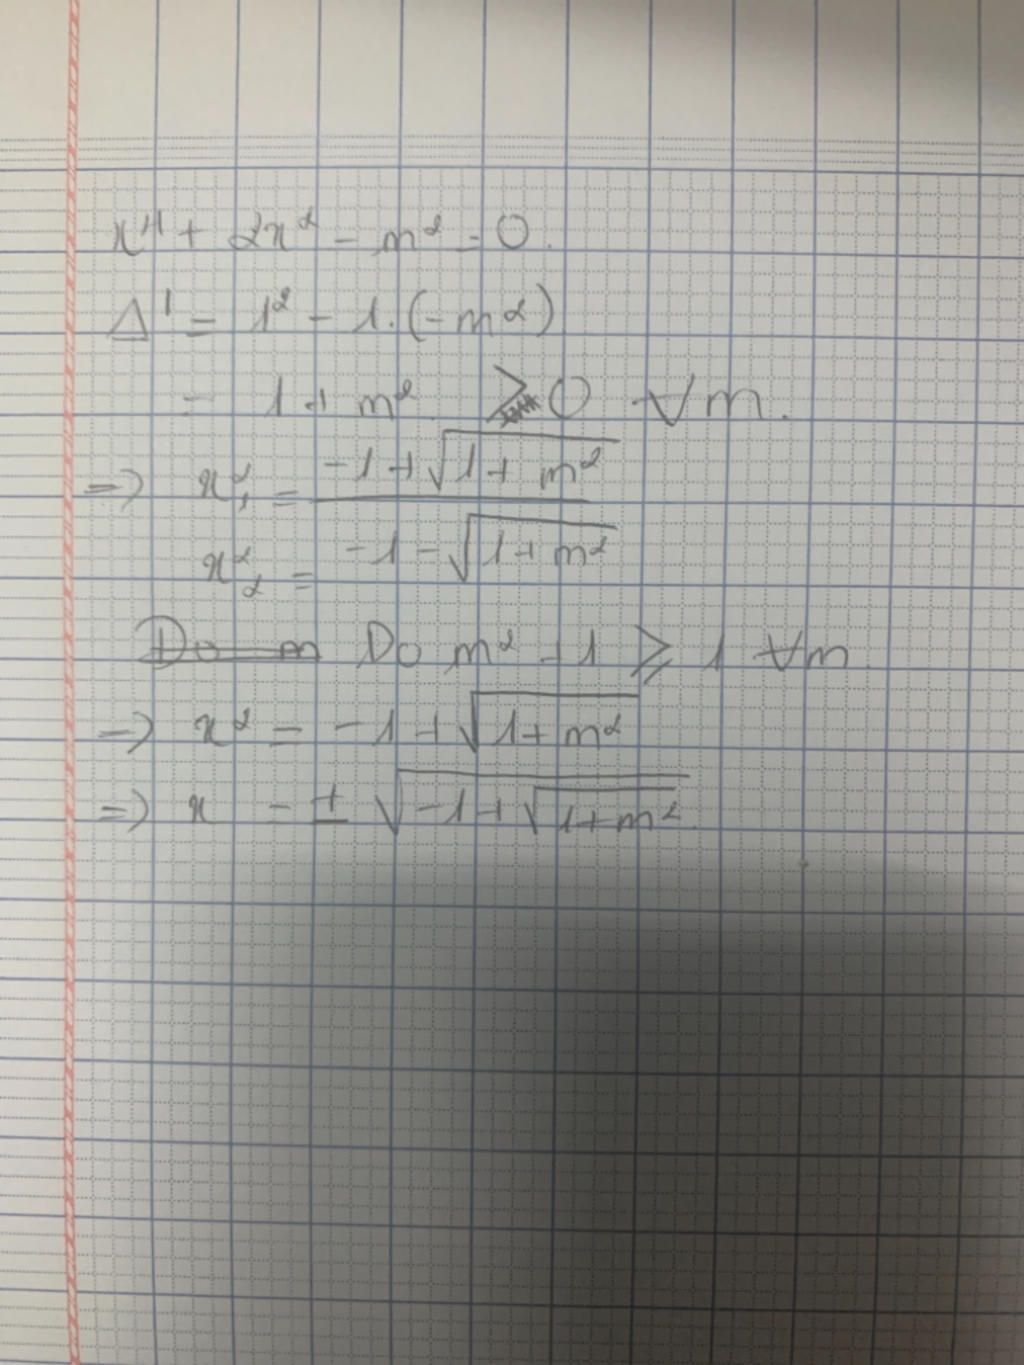 x⁴ + 2x² - m² = 0.
Δ' = 1² - 1.(-m²)
= 1 + m² > 0 ∀m.
=> x₁² = -1 + √(1 + m²)
x₂² = -1 - √(1 + m²)
Do m Do m² + 1 ⩾ 1 ∀m
=> x² = -1 + √(1 + m²)
=> x = ± √(-1 + √(1 + m²))